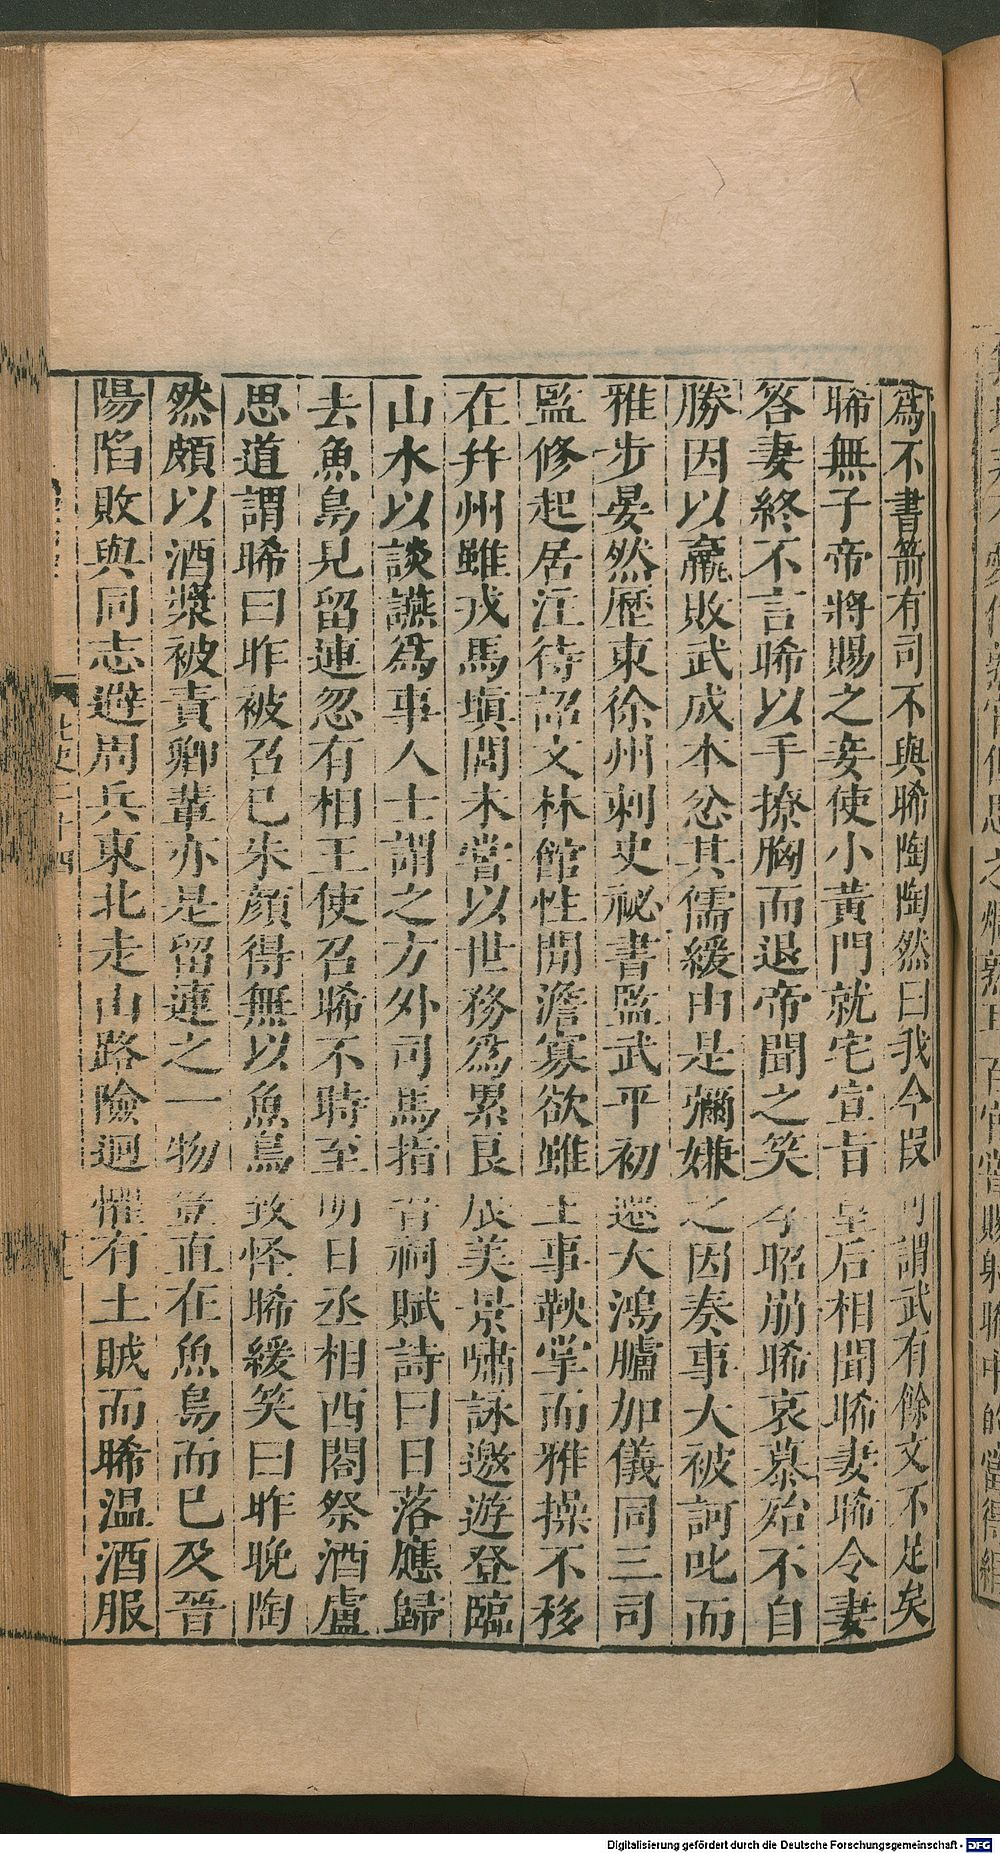 爲不書箭有司不與晞陶陶然曰我今段可謂武有餘文不足矣
晞無子帝將賜之妾使小黃門就宅宣旨皇后相聞晞妻晞令妻
答妻終不言晞以手撩胸而退帝聞之笑孝昭崩晞哀慕殆不自
勝因以羸敗武成本忿其儒緩由是彌嫌之因奏事大被訶叱而
雅步晏然歷東徐州刺史祕書監武平初遷大鴻臚加儀同三司
監修起居注待詔文林館性閒澹寡欲雖王事鞅掌而雅操不移
在幷州雖戎馬塡閭未嘗以世務爲累良辰美景嘯詠遨遊登臨
山水以談讌爲事人士謂之方外司馬指晉祠賦詩曰日落應歸
去魚鳥見留連忽有相王使召晞不時至明日丞相西閤祭酒盧
思道謂晞曰昨被召已朱顏得無以魚鳥致怪晞緩笑曰昨晚陶
然頗以酒漿被責卿輩亦是留連之一物豈直在魚鳥而已及晉
陽陷敗與同志避周兵東北走山路險迴懼有土賊而晞温酒服
北史二十四
Digitalisierung gefördert durch die Deutsche Forschungsgemeinschaft - DFG